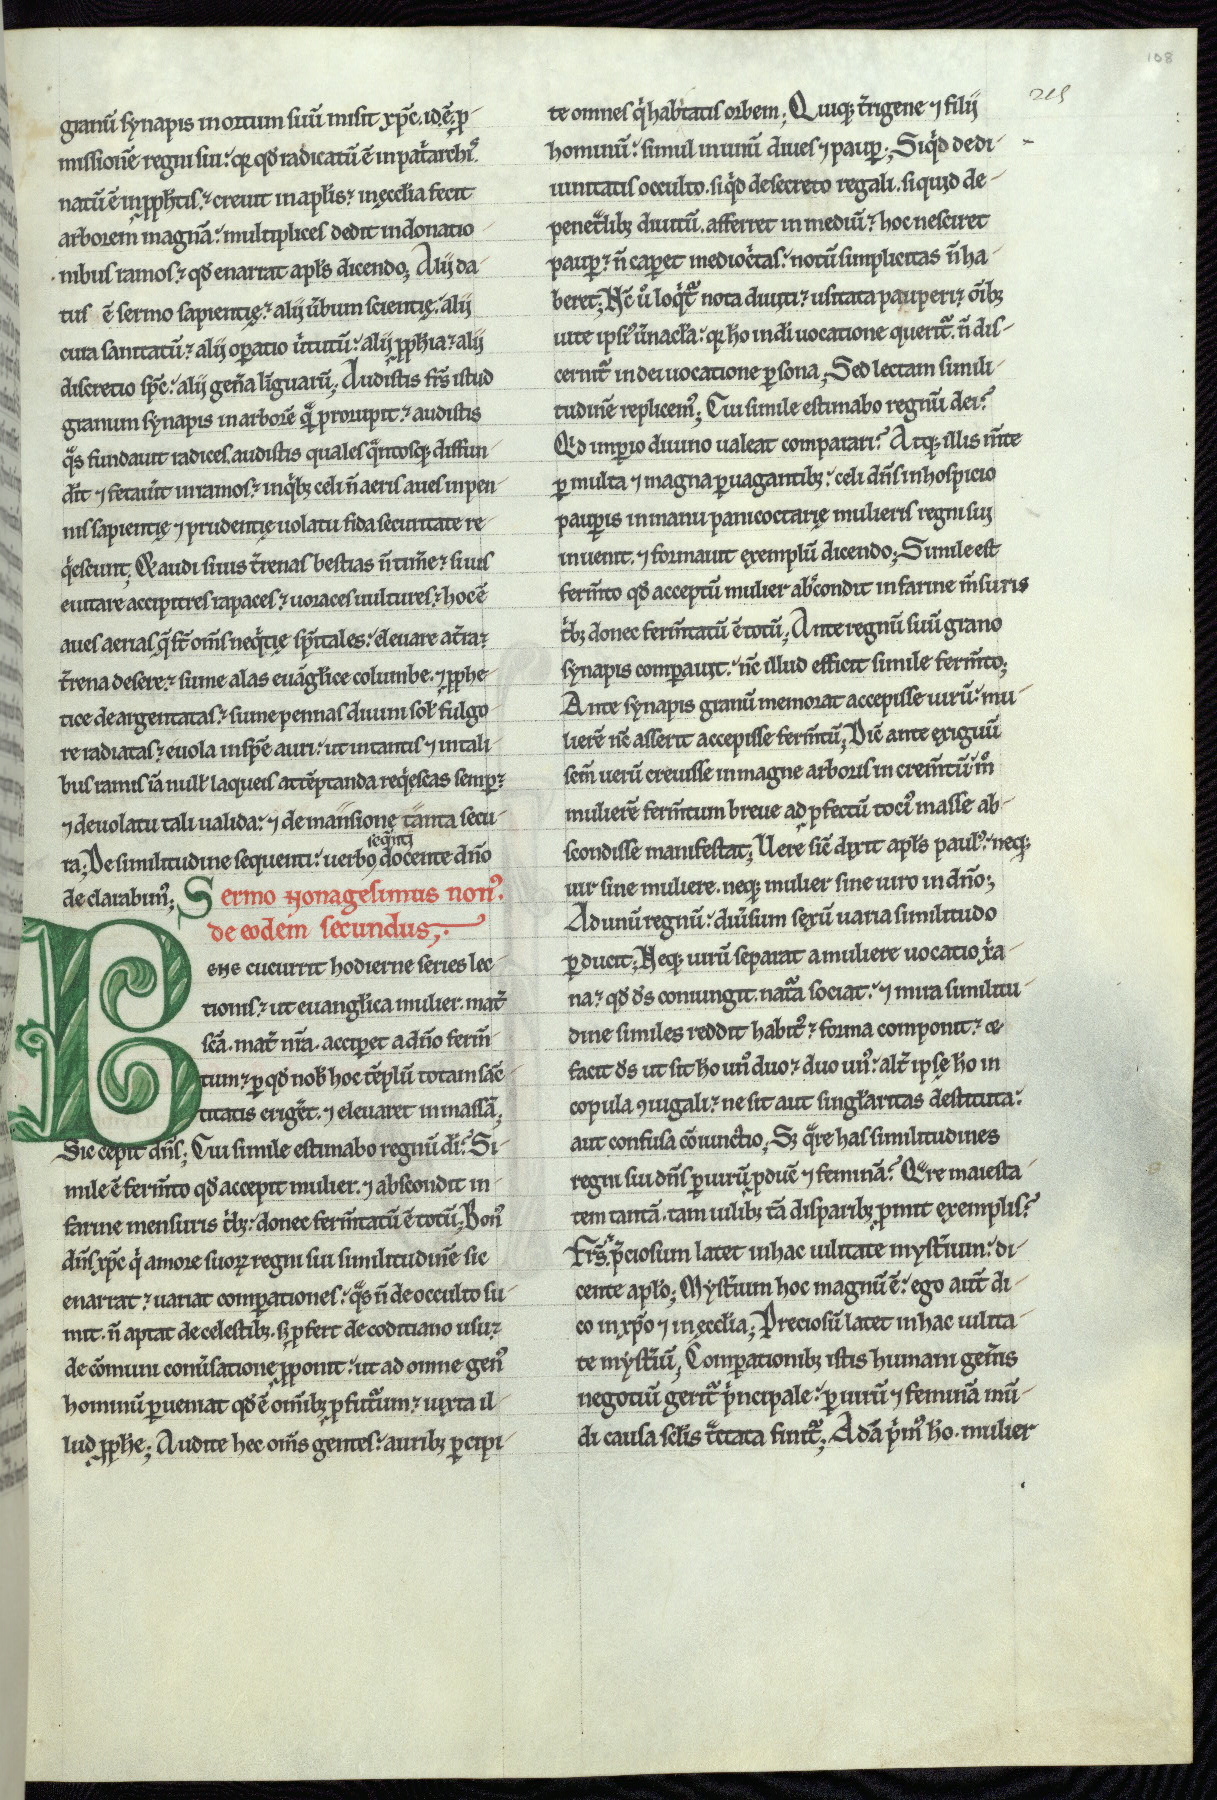 108
215
granū synapis in ortum suū misit xp̄c. id ē. ꝓ-
missionē regni sui: qꝛ qđ radicatū ē in pat̄archiſ.
natū ē in ꝓph̄tis. ⁊ creuit in apl̄is. ⁊ in ęccl̄ia fecit
arborem magnā. multiplices dedit in donatio-
nibus ramos. ⁊ qđ enarrat apl̄s dicendo; Alij da-
tus ē sermo sapientię. ⁊ alij ūbum scientię. alij
cura sanitatū. ⁊ alij oꝑatio uirtutū. alij ꝓph̄ia. ⁊ alij
discretio sp̄c. alij gen̄a līguarū; Audistis fr̄s istud
granum synapis in arborē qͣ̄ prorupit. ⁊ audistis
qͣ̄s fundauit radices. audistis quales qͣntosqꝫ diffun-
dit ⁊ fetauit in ramos. ⁊ inqͥbꝫ celi n̄ aeris aues in pen-
nis sapientię ⁊ prudentię uolatu fida securitate re-
qͥescunt; Et audi si uis t̄renas bestias n̄ tim̄e. ⁊ si uis
euitare accipitres rapaces. ⁊ uoraces uultures. ⁊ hoc ē
aues aerias q̄ st̄ om̄s neqͥtię sp̄itales. eleuare a t̄ra. ⁊
t̄rena desere. ⁊ sume alas euāglice columbe. ⁊ ꝓphe-
tice de argentatas. ⁊ sume pennas diuini sol̄ fulgo-
re radiatas. ⁊ euola in sp̄e auri. ut in tantis ⁊ in tali-
bus ramis iā null̄ laqueis attēptanda reqͥescas semꝑ. ⁊
⁊ deuolatu tali ualida. ⁊ de mansione tanta secu-
seqn̄ti
ra; De similitudine sequenti. uerbo docente dn̄o
de clarabimꝰ;
Sermo Nonagesimus nonꝰ.
de eodem secundus;
Bene cucurrit hodierne series lec-
tionis. ⁊ ut euangl̄ica mulier. mat̄
sc̄a. mat̄ nr̄a. acciꝑet a dn̄o ferm̄-
tum. ⁊ ꝑ qđ nob̄ hoc tēplū totam sāc-
titatis eriḡet. ⁊ eleuaret in massā;
Sic cepit dn̄s; Cui simile estimabo regnū di᷑; Si-
mile ē ferm̄to qđ accepit mulier. ⁊ abscondit in
farine mensuris tͥbꝫ. donec ferm̄tatū ē totū; Bonꝰ
dn̄s xp̄c qͥ amore suoꝝ regni sui similitudinē sic
enarrat. ⁊ uariat comꝑationes. qͣ̄s n̄ de occulto su-
mit. n̄ aptat de celestibꝫ. sꝫ ꝓfert de cotidiano usu. ⁊
de cōmuni conūsatione ꝓponit. ut ad omne genꝰ
hominū ꝑueniat qđ ē om̄ibꝫ ꝓfutūum. ⁊ iuxta il-
lud ꝓph̄e; Audite hec om̄s gentes. auribꝫ ꝑcipi-
te omnes qͥ habitatis orbem; Quiqꝫ t̄rigene ⁊ filij
hominū. simul in unū diues ⁊ pauꝑ; Siqͥd de di-
uinitatis occulto. siqͥd de secreto regali. si quid de
penet̄libꝫ diuitū. afferret in mediū. ⁊ hoc nesciret
pauꝑ. ⁊ n̄ caꝑet mediocͥtas. notū simplicitas n̄ ha-
beret; Nc̄ ů loqͥt᷑ nota diuiti. ⁊ usitata pauperi. ⁊ oīb;
uite ipsiꝰ ūnacl̄a. qꝛ ho in di᷑ uocatione querit᷑. n̄ dis-
cernit᷑ in dei uocatione ꝑsona; Sed lectam simili-
tudinē replicemꝰ; Cui simile estimabo regnū dei?
Qid imꝑio diuino ualeat comparari? Atqꝫ illis m̄te
ꝑ multa ⁊ magna ꝑuagantibꝫ. celi dn̄s in hospicio
pauꝑis in manu panicoctarię mulieris regni sui
inuenit. ⁊ formauit exemplū dicendo; Simile est
ferm̄to qđ acceptū mulier abscondit in farine m̄suris
tͥbꝫ donec ferm̄tatū ē totū; Ante regnū suū grano
synapis comꝑauit. nc̄ illud efficit simile ferm̄to;
Ante synapis granū memorat accepisse uirū. mu-
lierē nc̄ asserit accepisse ferm̄tū; Dic̄ ante exiguū
sem̄ uerū creuisse in magne arboris in crem̄tū. m̊
mulierē ferm̄tum breue ad ꝓfectū tociꝰ masse ab-
scondisse manifestat; Uere sic̄ dixit apl̄s paulꝰ. neqꝫ
uir sine muliere. neqꝫ mulier sine uiro in dn̄o;
Ad unū regnū. diuisum sexū uaria similitudo
ꝑducit; Neqꝫ uirū separat a muliere uocatio xͥa-
na. ⁊ qđ ds̄ coniungit. natͣa sociat. ⁊ mira similitu-
dine similes reddit habitꝰ. ⁊ forma componit. ⁊ ce
facit ds̄ ut sit ho unꝰ duo. ⁊ duo unꝰ. alt̄ ipse ho in
copula ꝯiugali. ⁊ ne sit aut singl̄aritas destituta.
aut confusa cōiunctio; Sꝫ qͣre has similitudines
regni sui dn̄s ꝑ uirū ꝓduc̄ ⁊ feminā? Qͣre maiesta-
tem tantā. tam uilibꝫ tā disparibꝫ ꝓmit exemplis?
Fr̄s. p̄ciosum latet in hac uilitate myst̄ium. di-
cente apl̄o; Myst̄ium hoc magnū ē. ego aut̄ di-
co in xp̄o ⁊ in ęccl̄ia; Preciosū latet in hac uilita-
te myst̄iū; Comꝑationibꝫ istis humani gen̄is
negotiū gerit᷑ pͥncipale. ꝑ uirū ⁊ feminā mū-
di causa scl̄is tͣctata finit᷑; Adā pͥmꝰ ho. mulier